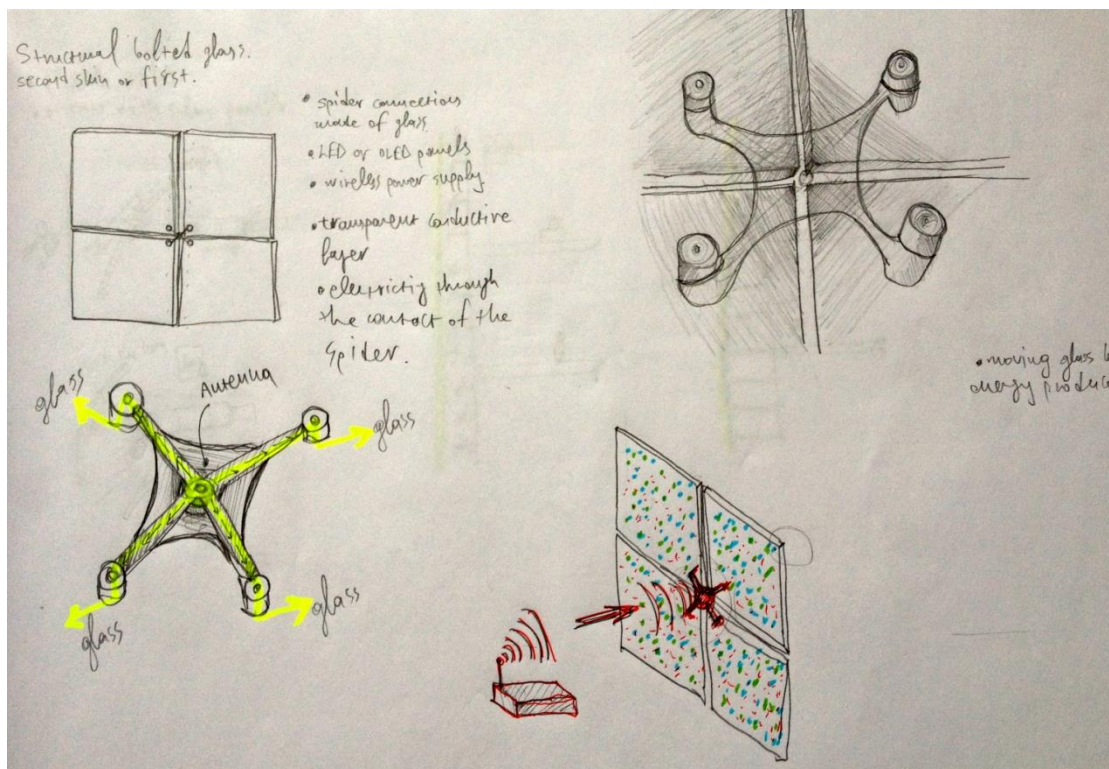 Structural bolted glass.
second skin or first.
• spider connections
made of glass
• LED or OLED panels
• wireless power supply
• transparent conductive
layer
• electricity through
the contact of the
spider.
• moving glass
energy
glass
Antenna
glass
glass
glass